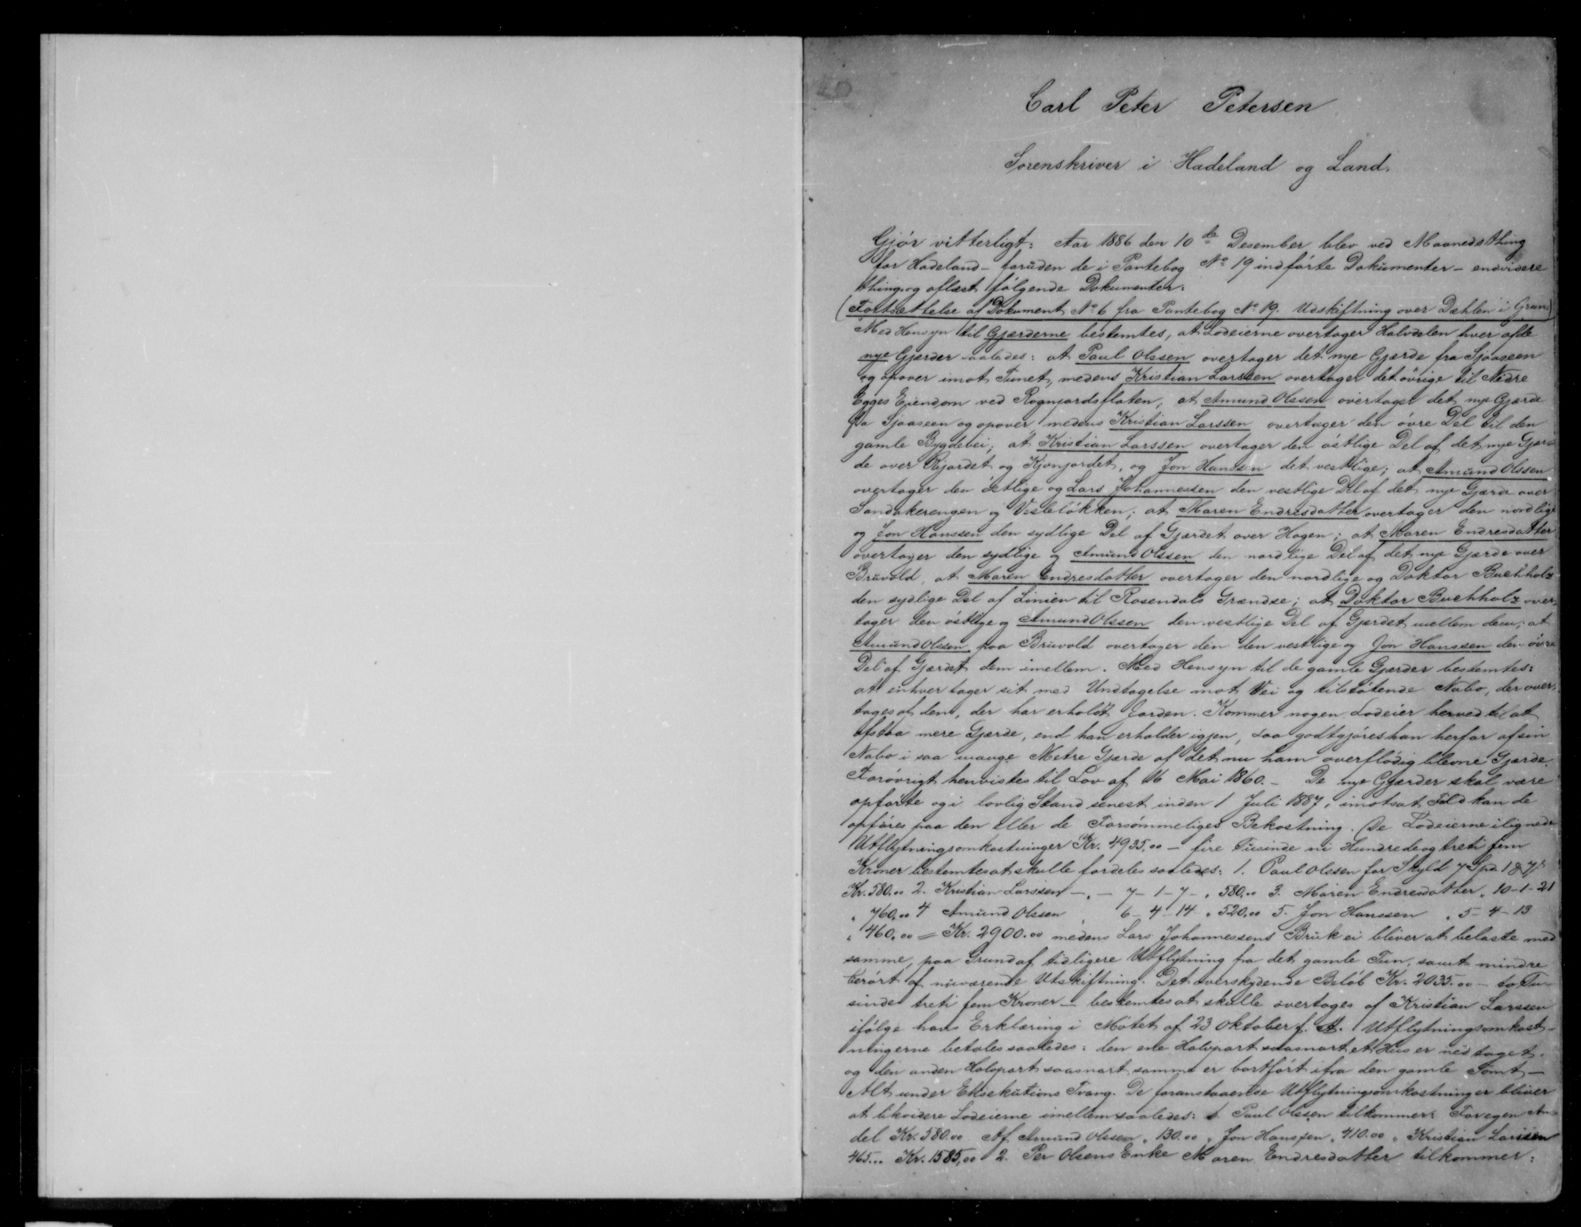 Carl Peter Petersen
Sorenskriver i Hadeland og Land.
Gjør vitterligt: Aar 1886 den 10de Desember blev ved Maanedsthing
for Hadeland – foruden de i Pantebog No 19 indførte Dokumenter – endvidere
thing. og aflæst følgende Dokumenter:
(Fortsættelse af Dokument No 6 fra Pantebog No 19. Udskiftning over Dæhlen i Gran)
Med Hensyn til Gjærderne bestemtes, at Lodeierne overtager Halvdelen hver af de
nye Gjerder saaledes: at Paul Olssen overtager det nye Gjærde fra Sjaaseen
og opover imot Tunet, medens Kristian Larssen overtager det øvrige til Nedre
Egges Eiendom ved Rognjordsflaten, at Amund Olssen overtager det nye Gjærde
fra Sjaaseen og opover medens Kristian Larssen overtager den øvre Del til den
gamle Bygdevei; at Kristian Larssen overtager den østlige Del af det nye Gjær-
de over Rjordet og Kjonjordet, og Jon Hanssen det vestlige; at Amund Olssen
overtager den østlige og Lars Johannessen den vestlige Del af det nye Gjærde over
Sandakerengen og Vesleløkken; at Maren Endresdatter overtager den nordlige
og Jon Hanssen den sydlige Del af Gjærdet over Hagen; at Maren Endresdatter
overtager den sydlige og Amund Olssen den nordlige Del af det nye Gjærde over
Bruvold, at Maren Endresdatter overtager den nordlige og Doktor Buchholz
den sydlige Del af Linien til Rosendals Grændse; at Doktor Buchholz over-
tager den østlige og Amund Olssen den vestlige Del af Gjerdet mellem dem; at
Amund Olssen paa Bruvold overtager den den vestlige og Jon Hanssen den øvre
Del af Gjærdet dem imellem. Med Hensyn til de gamle Gjærder bestemtes:
at enhver tager sit med Undtagelse mot Vei og tilstøtende Nabo, der over-
tages af dem, der har erholdt Jorden. Kommer nogen Lodeier herved til at
afstaa mere Gjærde, end han erholder igjen, saa godtgjøres han herfor af sin
Nabo i saa mange Metre Gjærde af det nu ham overflødig blevne Gjærde.
Forøvrigt henvistes til Lov af 16 Mai 1860. – De nye Gjærder skal være
opførte og i lovlig Stand senest inden 1 Juli 1887, imotsat Fald kan de
opføres paa den eller de Forsømmeliges Bekostning. De Lodeierne ilignede
Utflytningsomkostninger Kr. 4935,00 – fire Tusinde ni Hundrede og treti fem
Kroner bestemtes at skulle fordeles saaledes: 1. Paul Olssen for Skyld 7 Spd. 1 ₰ 7 β
Kr. 580.00 2. Kristian Larssen – „ – 7 – 1 – 7 – „ 580,00 3. Maren Endresdatter „ 10 – 1 – 21
„ 760,00 4 Amund Olssen „ 6 – 4 – 14 „ 520,00 5. Jon Hanssen „ 5 – 4 – 13
„ 460,00 = Kr. 2900.00 medens Lars Johannessens Bruk ei bliver at belaste med
samme, paa Grund af tidligere Utflytning fra det gamle Tun, samt mindre
berørt af nuværende Utskiftning. Det overskydende Beløb Kr. 2035.00 – to Tu-
sinde treti fem Kroner – bestemtes at skulle overtages af Kristian Larssen
ifølge hans Erklæring i Møtet af 23 Oktober f. A. Utflytningsomkost-
ningerne betales saaledes: den ene Halvpart saasnart et Hus er nedtaget,
og den anden Halvpart saasnart samme er bortført ifra den gamle Tomt –
Alt under Eksekutions Tvang. De foranstaaende Utflytningsomkostninger bliver
at likvidere Lodeierne imellem saaledes: 1 Paul Olssen tilkommer: For egen An-
del Kr. 580.00 Af Amund Olssen „ 130.00 „ Jon Hanssen „ 410.00 „ Kristian Larssen
465.. Kr. 1585,00 2. Per Olsens Enke Maren Endresdatter tilkommer: